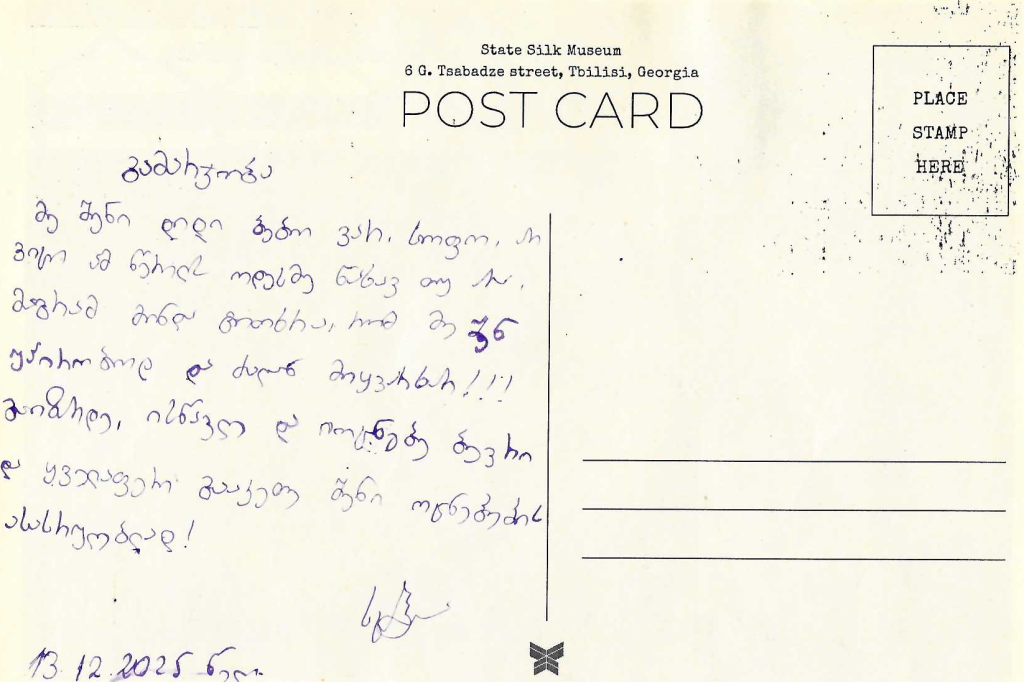 State Silk Museum
6 G. Tsabadze street, Tbilisi, Georgia
POST CARD
PLACE
STAMP
HERE
გამარჯობა
მე შენი დიდი ბებო ვარ, სოფო, არ
ვიცი ამ წერილს ოდესმე ნახავ თუ არა,
მაგრამ მინდა გითხრა, რომ მე შენ
უპირობოდ და ძალიან მიყვარხარ!!!
გაიზარდე, ისწავლე და იოცნებე ბევრი
და ყველაფერი გააკეთე შენი ოცნებების
ასასრულებლად!
13.12.2025 წელი